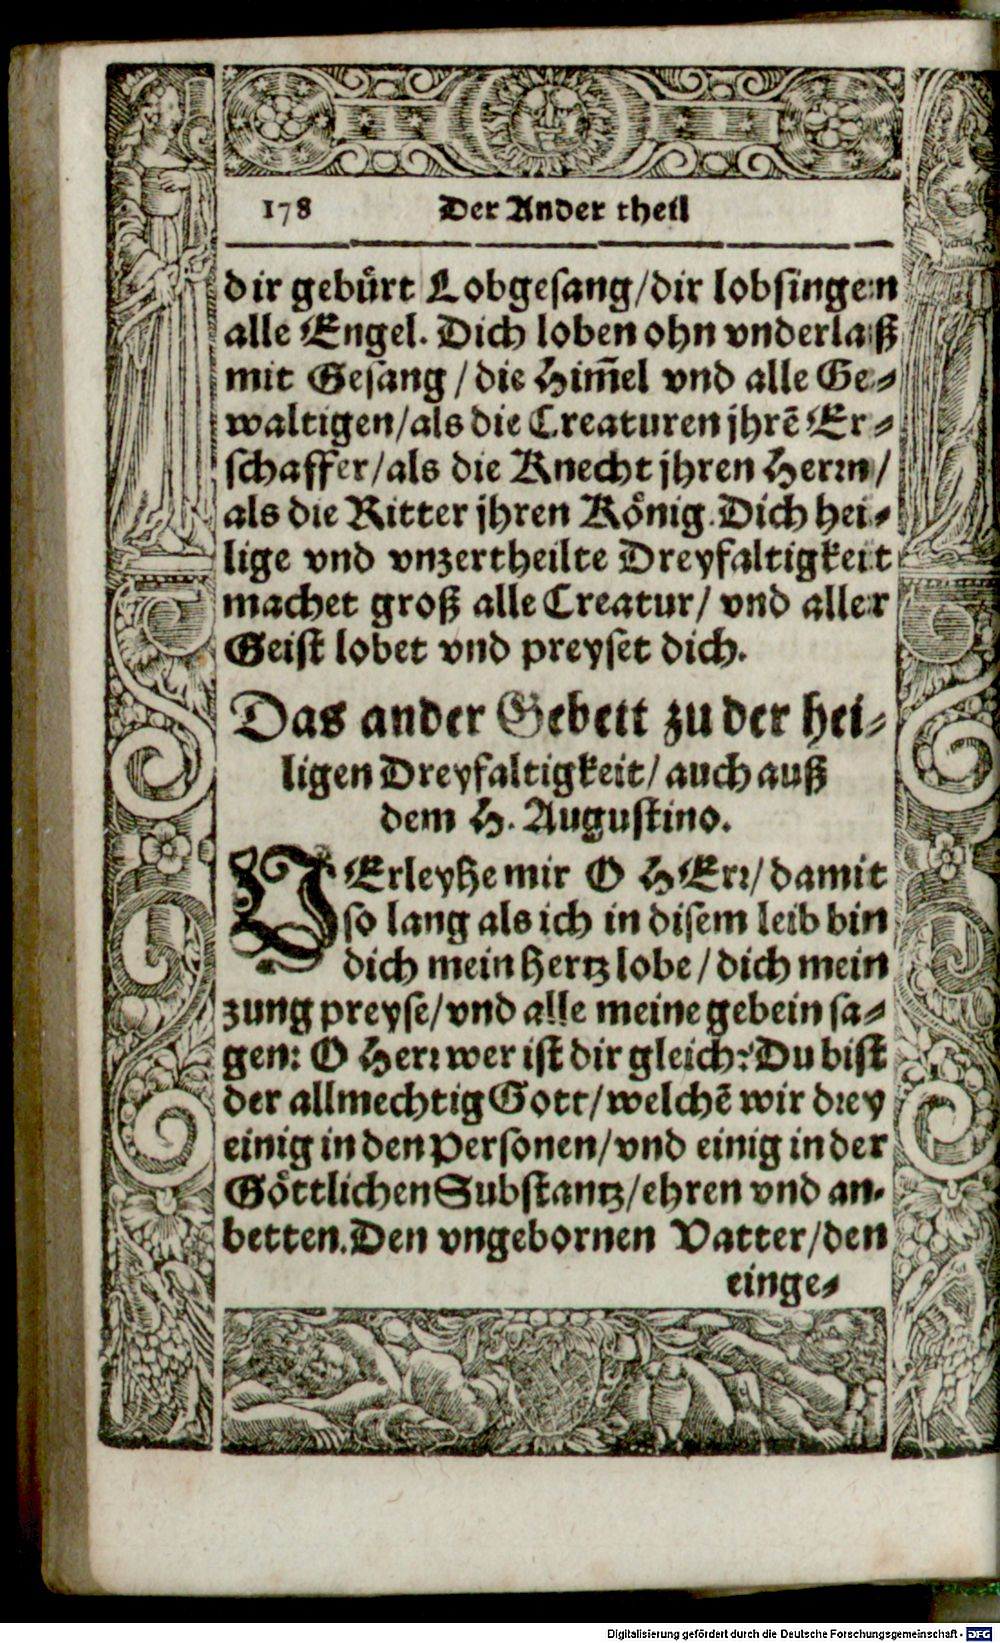 178 Der Ander theil
dir gebürt Lobgesang/dir lobsingen
alle Engel. Dich loben ohn vnderlaß
mit Gesang/die Him̃el vnd alle Ge-
waltigen/als die Creaturen jhrẽ Er-
schaffer/als die Knecht jhren Herrn/
als die Ritter jhren König. Dich hei-
lige vnd vnzertheilte Dreyfaltigkeit
machet groß alle Creatur/ vnd aller
Geist lobet vnd preyset dich.
Das ander Gebett zu der hei-
ligen Dreyfaltigkeit/ auch auß
dem H. Augustino.
VErleyhe mir O HErr/damit
so lang als ich in disem leib bin
dich mein hertz lobe/dich mein
zung preyse/vnd alle meine gebein sa-
gen: O Herr wer ist dir gleich? Du bist
der allmechtig Gott/welchẽ wir drey
einig in den Personen/vnd einig in der
Göttlichen Substantz/ehren vnd an-
betten. Den vngebornen Vatter/den
einge-
Digitalisierung gefördert durch die Deutsche Forschungsgemeinschaft - DFG